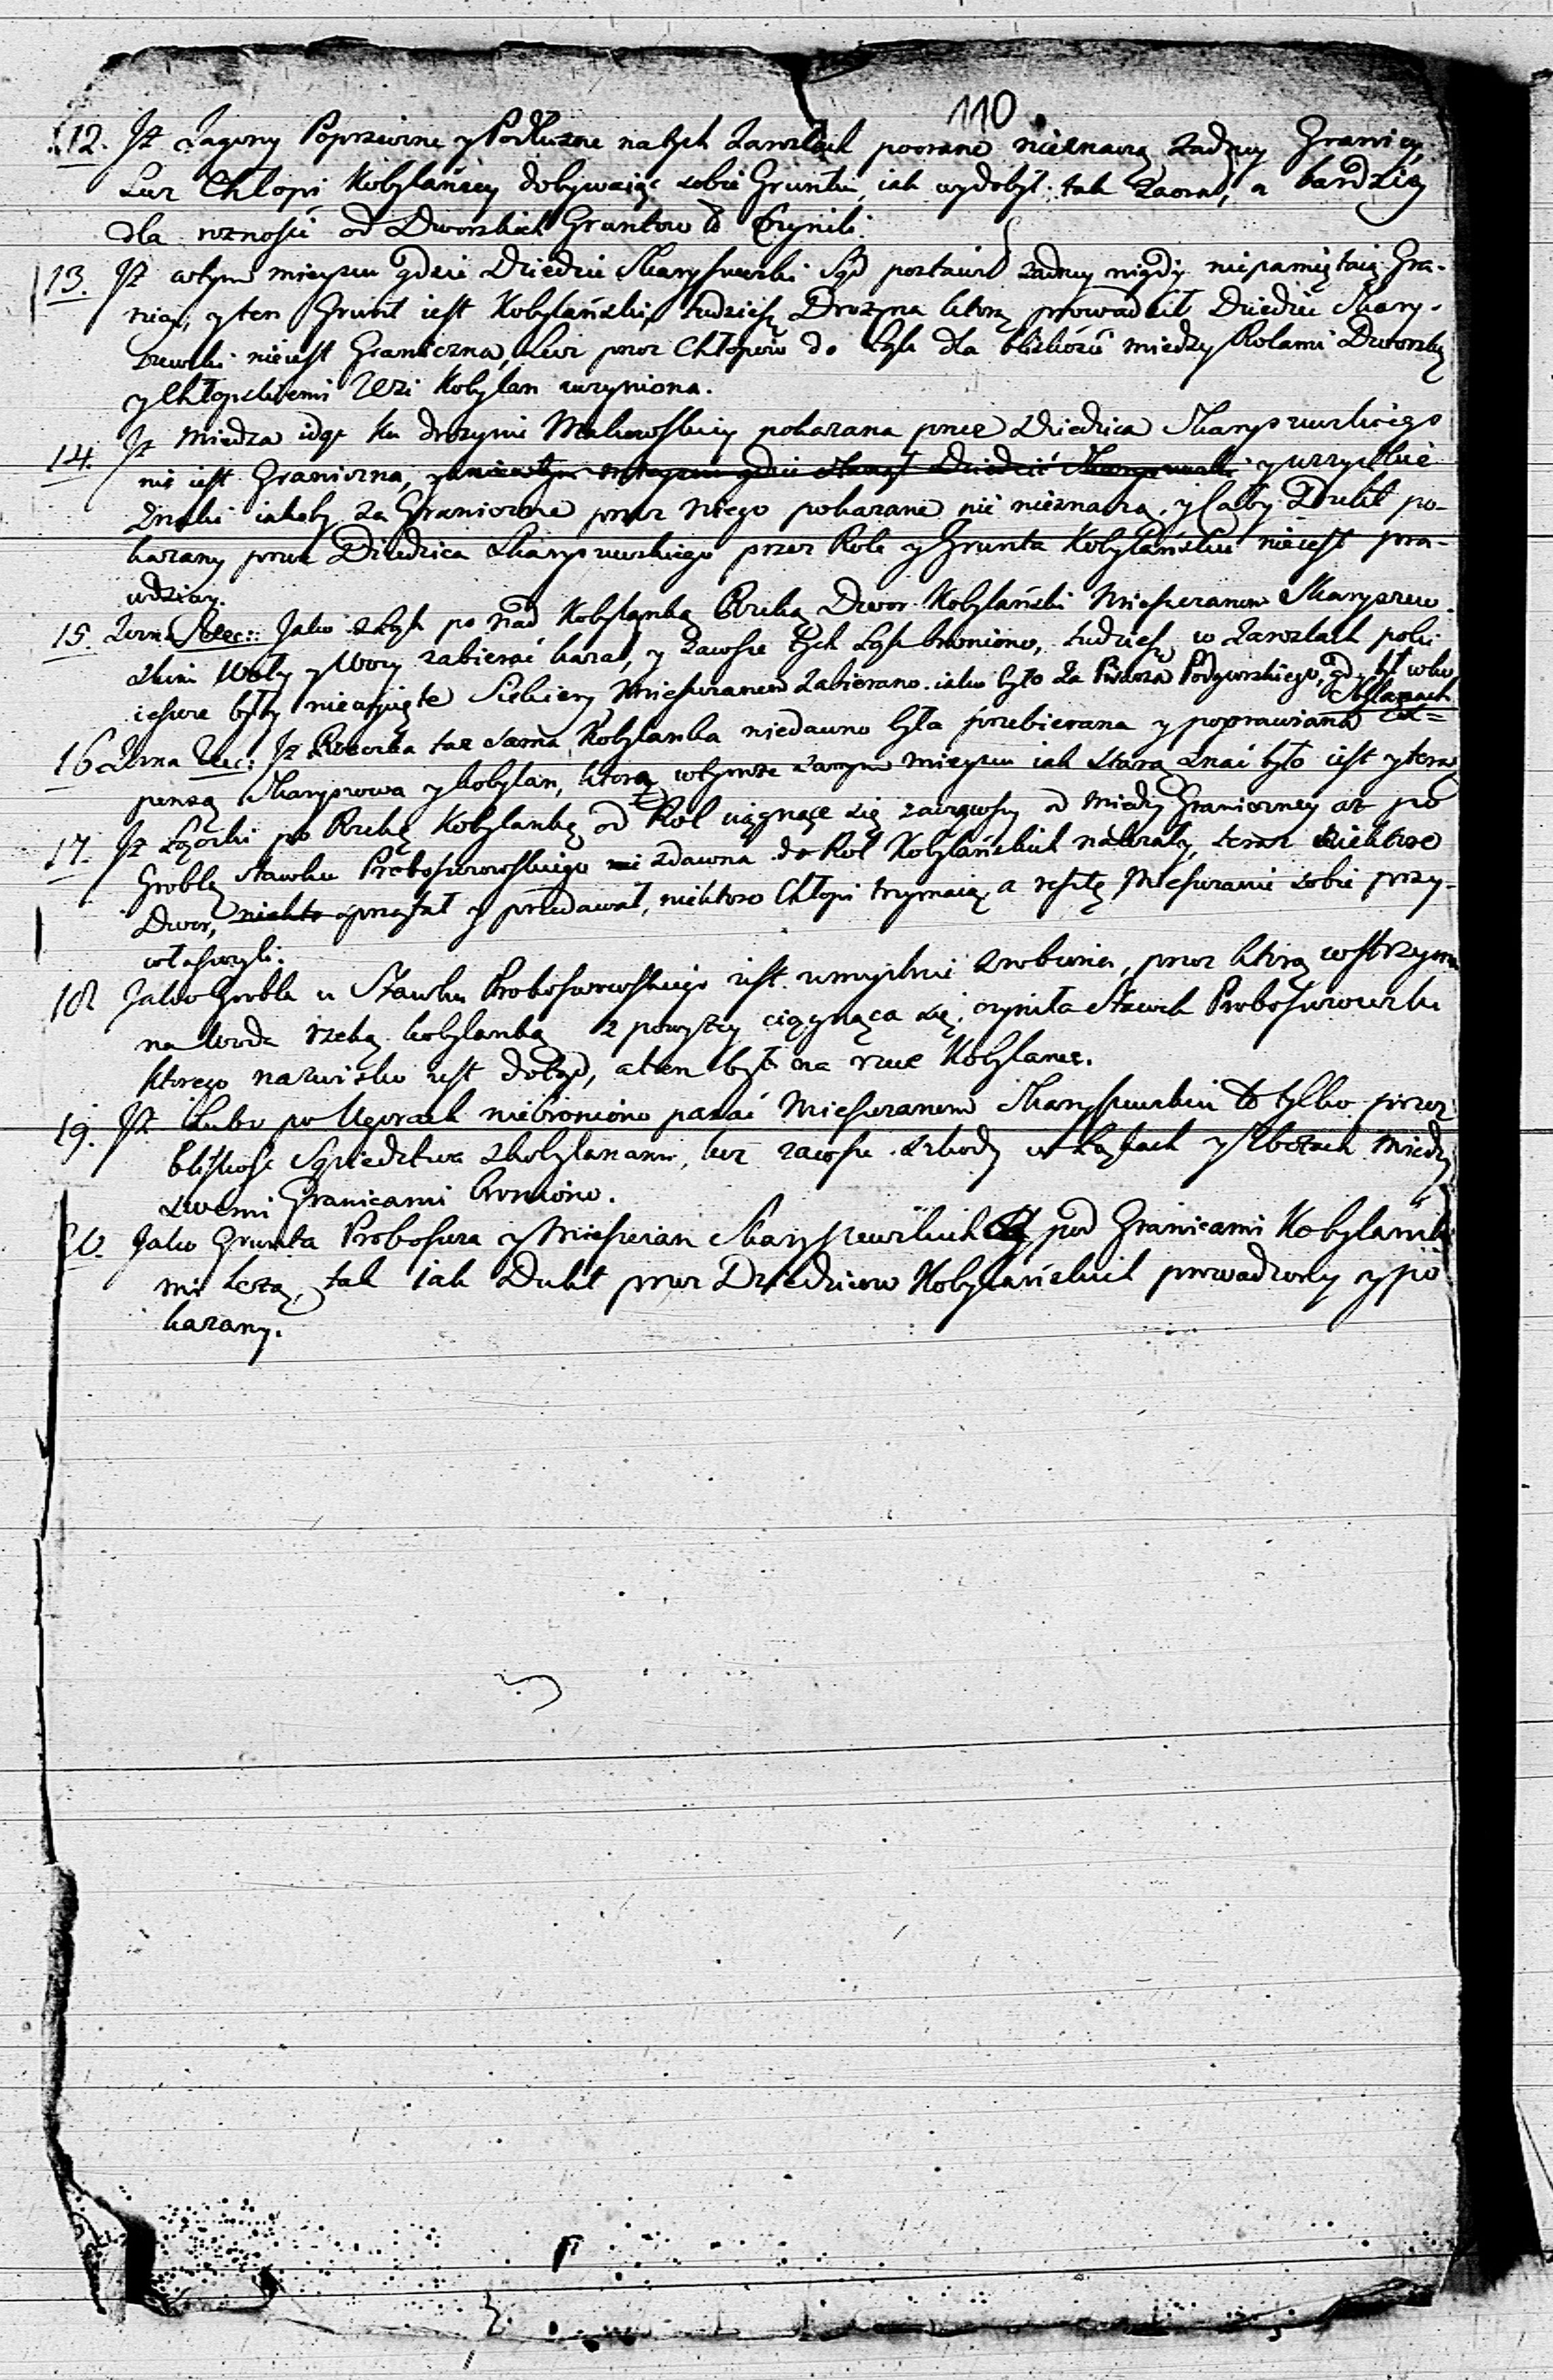 110.
12. Jż Zagony Poprzeczne y Podłużne na tych Zarostlach poorane nieznaczą żadney Granicy,
Lecz Chłopi Kobylańscy dobywaiąc sobie Gruntu, iak wydobył tak Zaorał, a bardziey
dla rożności od Dworskich Gruntow to Czynili.
13. Jż wtym mieyscu gdzie Dziedzic Skaryszewski Sąd postawił żadney nigdy niepamiętaią Gra-
nicy, y ten Grunt iest Kobylański, tudziesz Drożyna ktorą prowadził Dziedzic Skary-
szewski nieiest Graniczna, Lecz przez Chłopow do Łąk dla bliskości miedzy Rolami Dworskiey
y Chłopskiemi Wsi Kobylan uczyniona.
14. Jż Miedza idąc ku drożynie Makowskiey pokazana przez Dziedzica Skaryszewskiego
nie iest Graniczna, y wszystkie
Znaki iakoby za Graniczne przez niego pokazane nic nieznaczą, y Cały Dukt po-
kazany przez Dziedzica Skaryszewskiego przez Role y Grunta Kobylańskie nieiest pra-
wdziwy.
15. Jako z Łąk po nad Kobylanką Rzeką Dwor Kobylański Mieszczanom Skaryszew-
skim Woły y Krowy zabierać kazał, y zawsze tych Łąk broniono, tudziesz w Zarostlach poki
ieszcze były niewycięte Siekiery Mieszczanom zabierano, iako było za Podgorskiego, gdy był w Ko-
bylanach
16. Jż Rzeczka taż sama Kobylanka niedawno była przebierana y poprawiana Ex-
pensą Skaryszewa y Kobylan, ktora wtymże samym mieyscu iak stara znać było iest y teraz
17. Jż Łączki po Rzekę Kobylankę od Rol ciągnące się zacząwszy od Miedzy Graniczney aż po
Groblę Stawku Proboszczowskiego zdawna do Rol Kobylańskich należały, teraz niektore
Dwor, niekto sprzątał y przedawał, niektore Chłopi trzymaią, a resztę Mieszczanie sobie przy-
właszczyli.
18 Jako Grobla u Stawku Proboszczowskiego iest umyślnie zrobiona, przez ktorą wstrzyma-
na Woda rzeką Kobylanką z powyższy ciągnąca się, czyniła Stawek Proboszczowski
ktorego nazwisko iest dotąd, a ten był na rzece Kobylance.
19. Jż Lubo po Ugorach niebroniono pasać Mieszczanom Skaryszewskim to tylko przez
bliskość Sąsiedztwa z Kobylanami, lecz zawsze szkody w Łąkach y Zbożach Miedzy
swemi Granicami broniono.
20. Jako Grunta Proboszcza y Mieszczan Skaryszewskich pod Granicami Kobylański-
mi leżą, tak iak Dukt przez Dziedzicow Kobylańskich prowadzony y po
kazany.